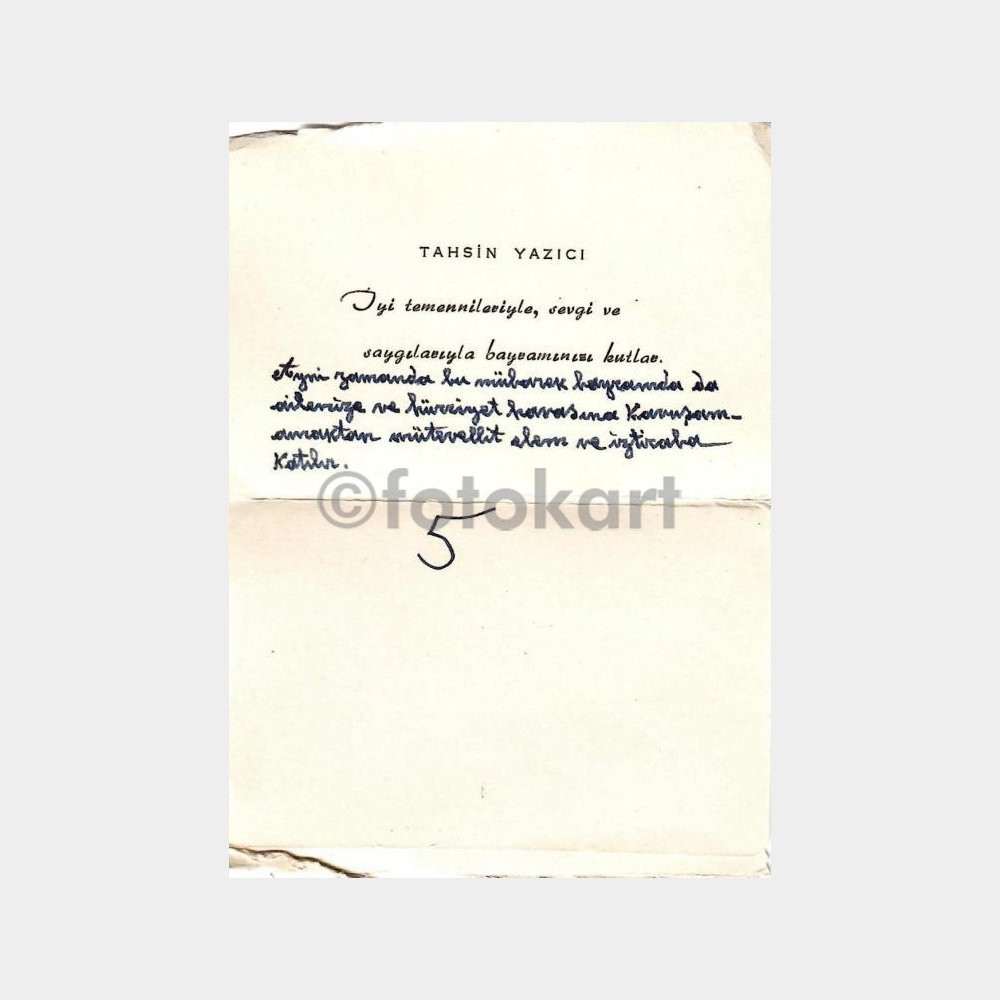 TAHSİN YAZICI
İyi temennileriyle, sevgi ve
saygılarıyla bayramınızı kutlar.
Ayni zamanda bu mübarek bayramda da
ailenize ve hürriyet havasına Kavuşam-
amaktan mütevellit elem ve ıztıraba
Katılır.
©fotokart
5